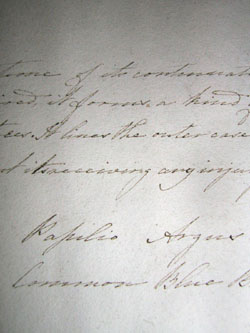 time of its continuat
it forms a kind
It lines the outer case
its receiving any inju
Papilio Argus
Common Blue B